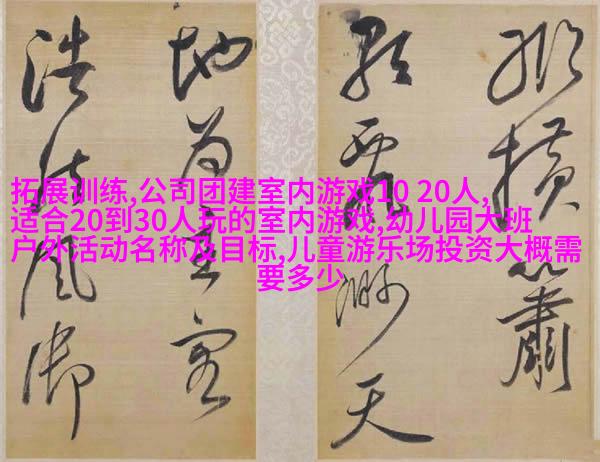 拓展训练,公司团建室内游戏10 20人,
适合20到30人玩的室内游戏,幼儿园大班
户外活动名称及目标,儿童游乐场投资大概需
要多少
橫簫
天
地為
浩然風御